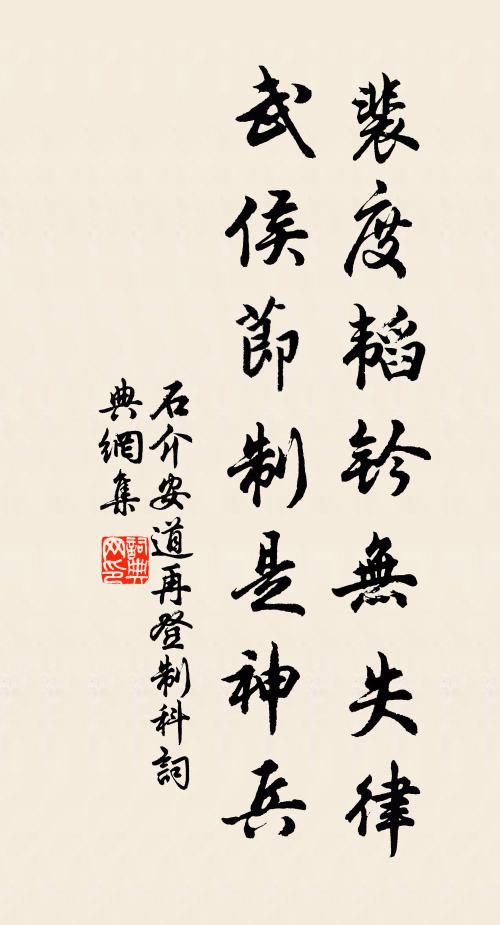 裴度韜鈐無失律
武侯節制是神兵
石介安道再登制科詞
典網集
詞典
网印